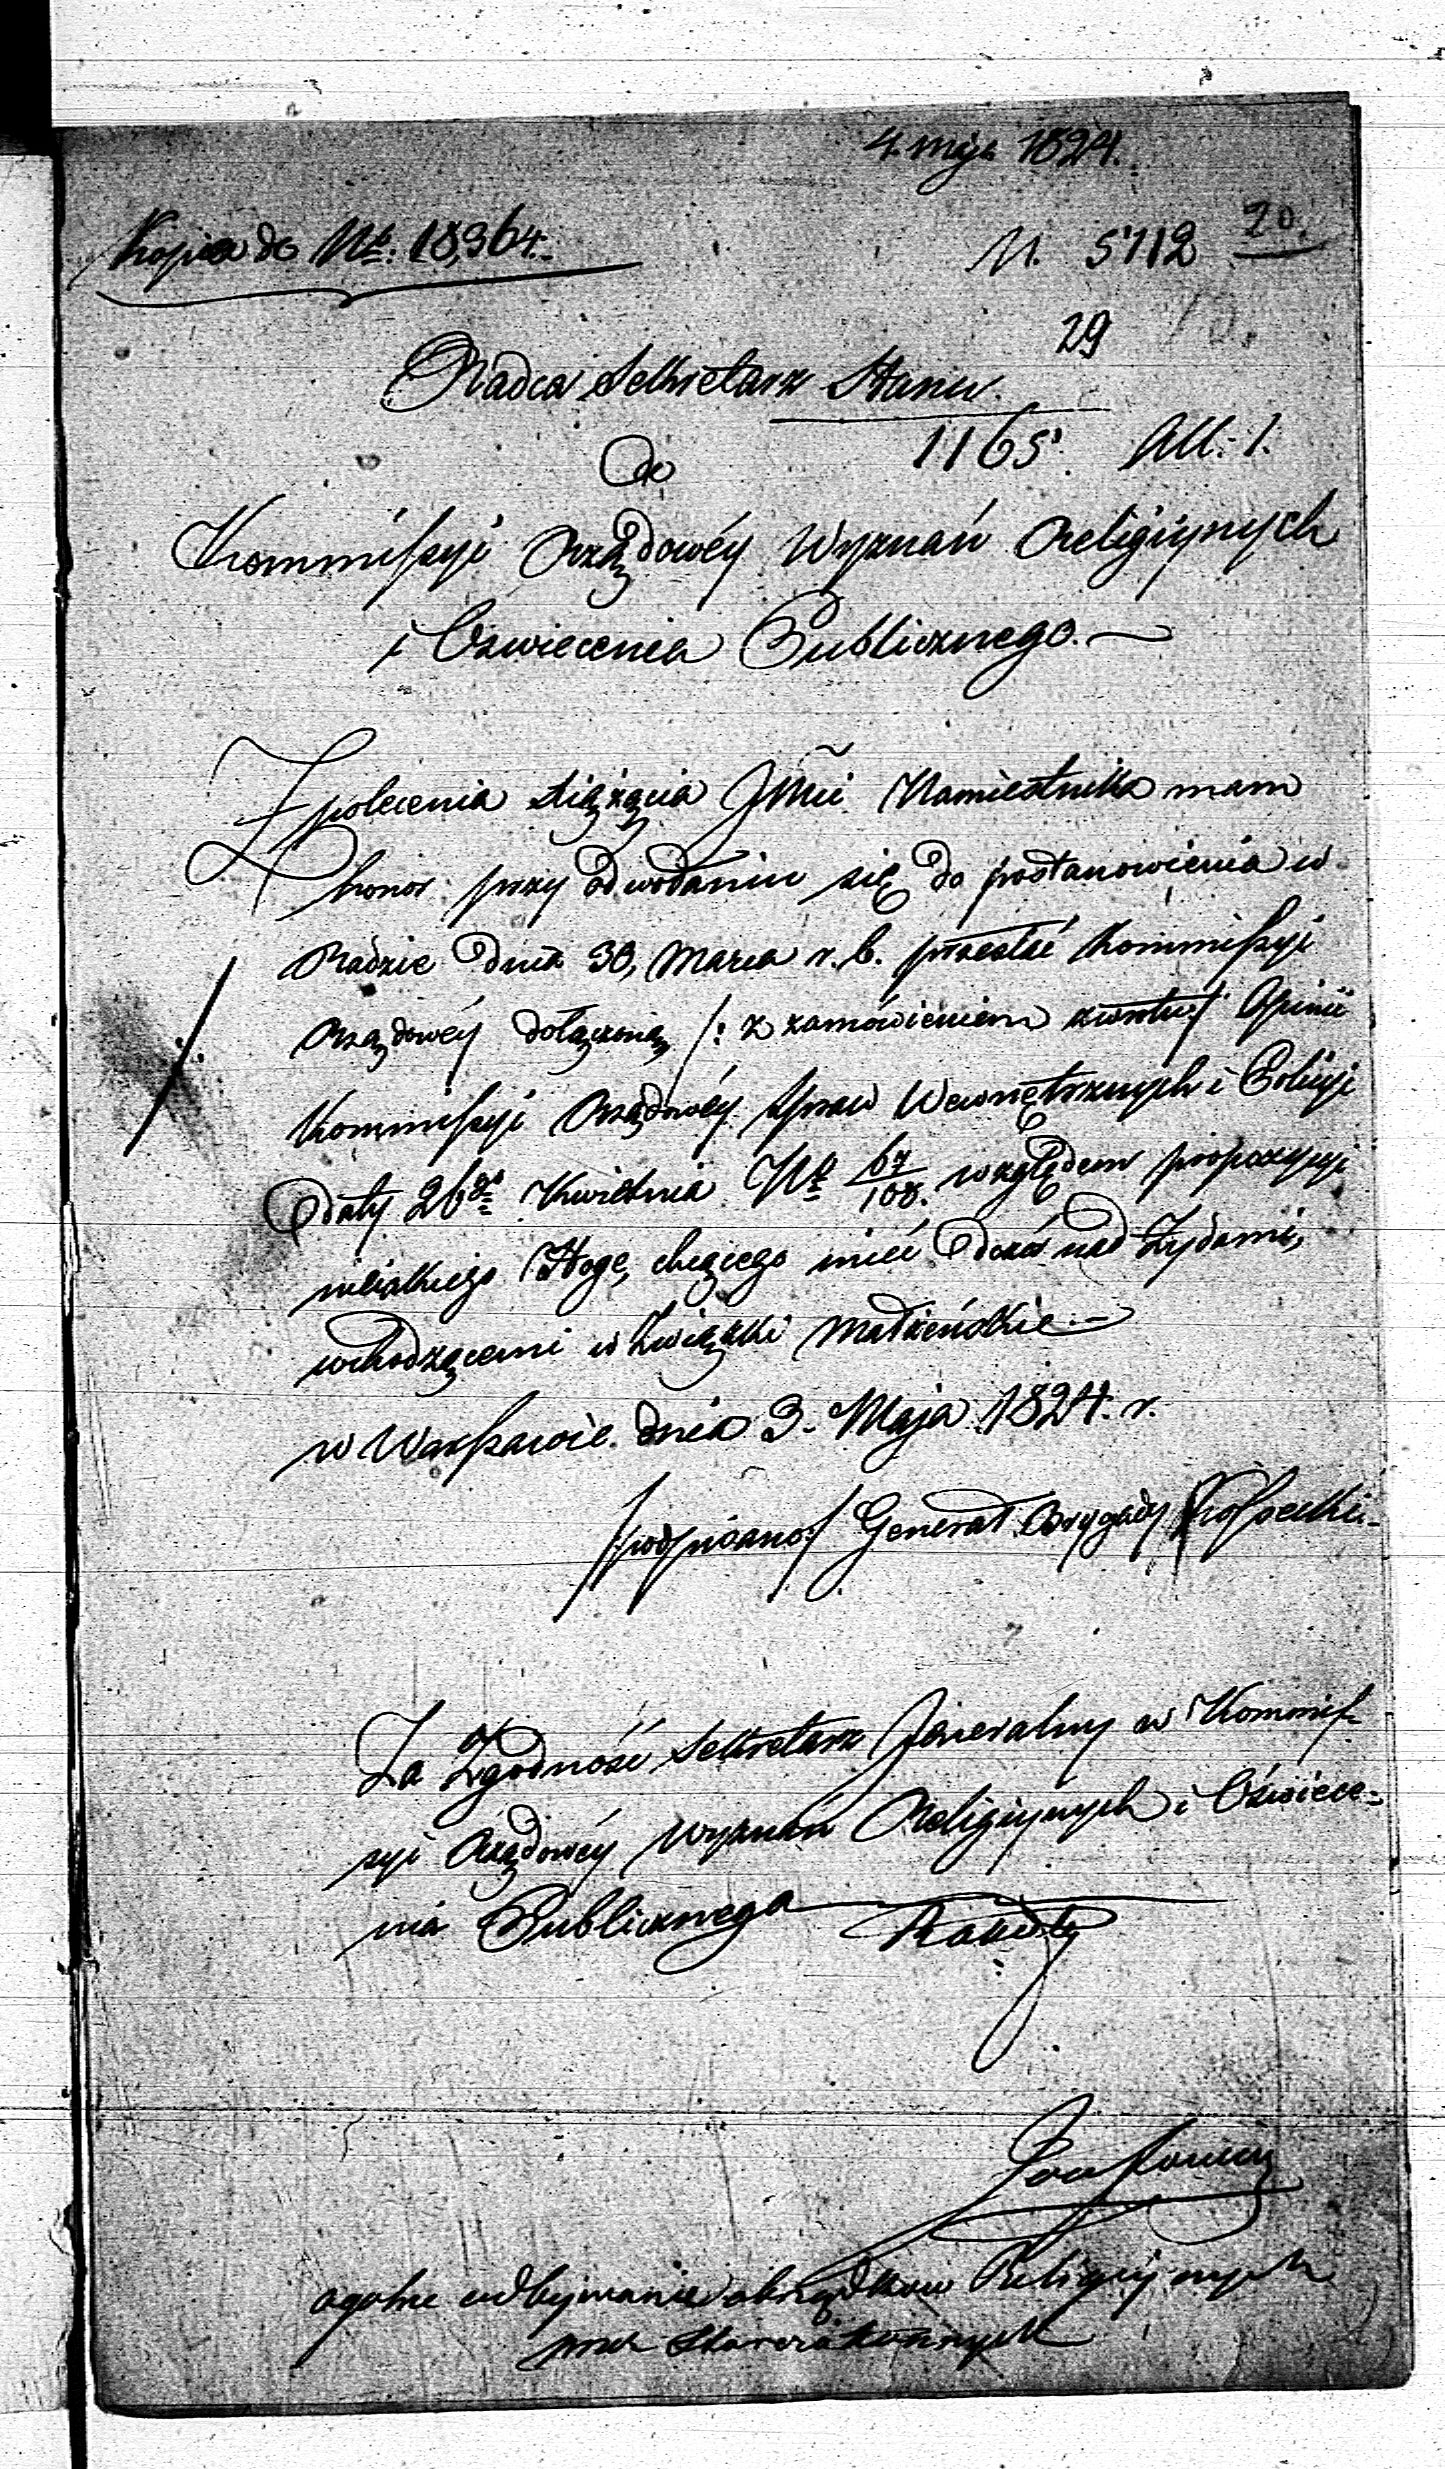 4 maja 1824.
Kopia do No. 18,364.
N. 5112 20.
29
Radca Sekretarz Stanu.
1165. All: 1.
Do
Kommissyi Rządowéy Wyznań Religiynych
i Oświecenia Publicznego.
Z polecenia Xiążęcia JMci Namiestnika mam
honor przy odwołaniu się do postanowienia w
Radzie dnia 30, Marca r. b. przesłać Kommissyi
Rządowéy dołączoną /: z zamówieniem zwrotu :/ Opinii
Kommissyi Rządowéy Spraw Wewnętrznych i Policyi
daty 26go Kwietnia No 67/108. względem propozycyi
niejakiego Hoge, chcącego mieć dozór nad Żydami,
wchodzącemi w Związki Małżeńskie.
w Warszawie dnia 3. Maja 1824. r.
/:podpisano:/ Generał Brygady Kossecki
Za Zgodność Sekretarz Jeneralny w Kommis-
syi Rządowéy Wyznań Religiynych i Oświece-
nia Publicznego
ogólne odbywanie obrządków Religiynych
przez Starozakonnych